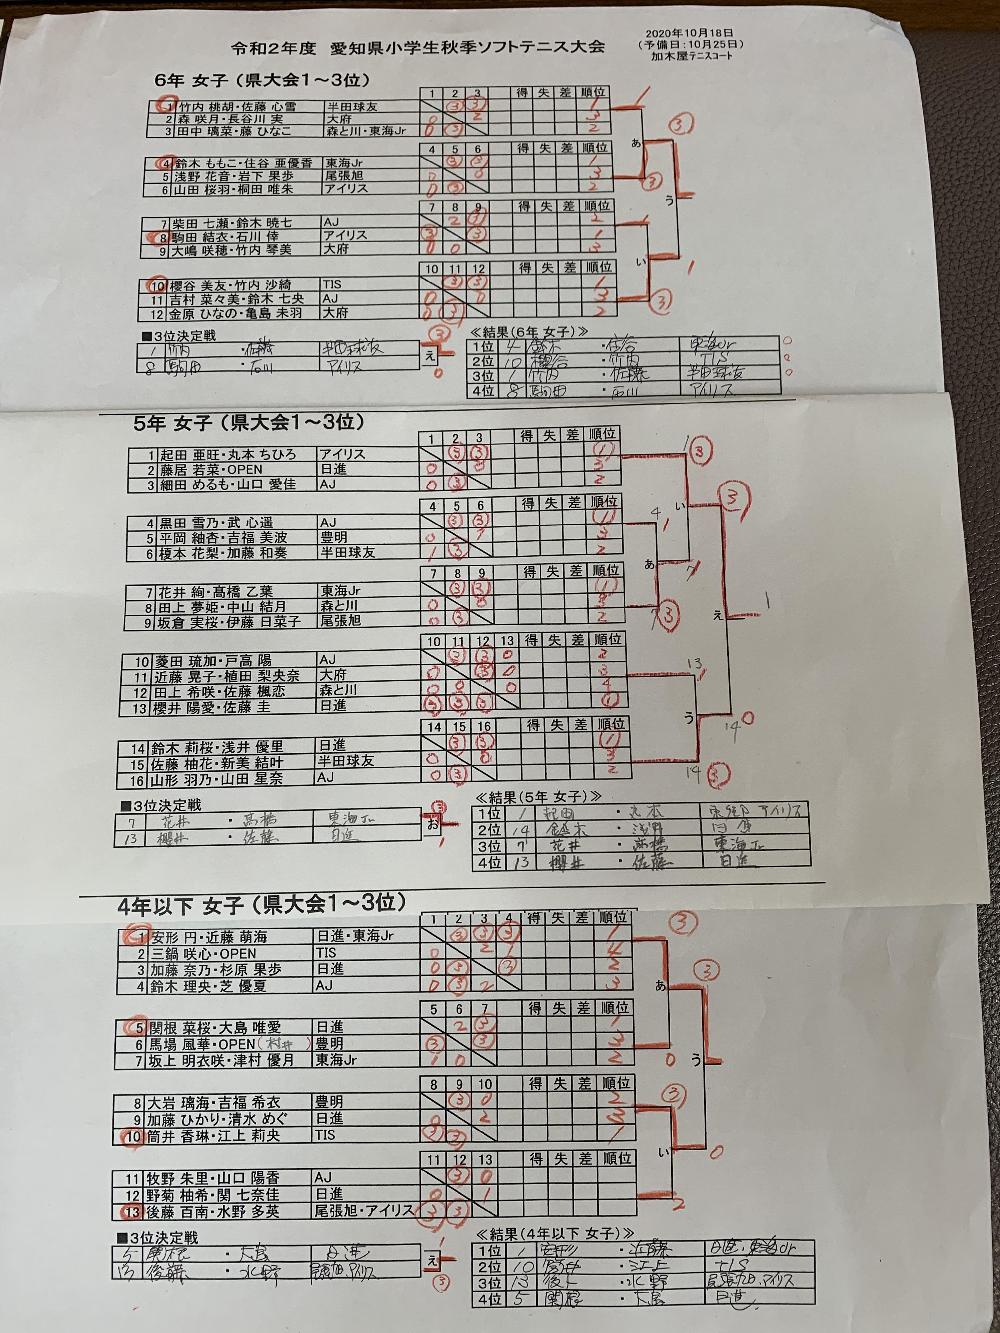 令和2年度 愛知県小学生秋季ソフトテニス大会
2020年10月18日
(予備日:10月25日)
加木屋テニスコート
6年 女子 (県大会1~3位)
1 2 3 得 失 差 順位
1 竹内 桃胡・佐藤 心雪 半田球友 ③ ③ 1
2 森 咲月・長谷川 実 大府 0 2 3
3 田中 璃菜・藤 ひなこ 森と川・東海Jr 0 ③ 2
4 5 6 得 失 差 順位
4 鈴木 ももこ・住谷 亜優香 東海Jr ③ ③ 1
5 浅野 花音・岩下 果歩 尾張旭 0 0 3
6 山田 桜羽・桐田 唯朱 アイリス 0 ③ 2
7 8 9 得 失 差 順位
7 柴田 七瀬・鈴木 暁七 AJ 2 ③ 2
8 駒田 結衣・石川 倖 アイリス ③ ③ 1
9 大嶋 咲穂・竹内 琴美 大府 0 0 3
10 11 12 得 失 差 順位
10 櫻谷 美友・竹内 沙綺 TIS ③ ③ 1
11 吉村 菜々美・鈴木 七央 AJ 0 0 3
12 金原 ひなの・亀島 未羽 大府 0 ③ 2
あ い う
■3位決定戦
1 竹内 ・佐藤 半田球友 ③
8 駒田 ・石川 アイリス 0
え
≪結果(6年 女子)≫
1位 4 鈴木 ・住谷 東海Jr
2位 10 櫻谷 ・竹内 TIS
3位 1 竹内 ・佐藤 半田球友
4位 8 駒田 ・石川 アイリス
5年 女子 (県大会1~3位)
1 2 3 得 失 差 順位
1 起田 亜旺・丸本 ちひろ アイリス ③ ③ 1
2 藤居 若菜・OPEN 日進 0 0 3
3 細田 めるも・山口 愛佳 AJ 0 ③ 2
4 5 6 得 失 差 順位
4 黒田 雪乃・武 心遥 AJ ③ ③ 1
5 平岡 紬杏・吉福 美波 豊明 0 3
6 榎本 花梨・加藤 和奏 半田球友 1 ③ 2
7 8 9 得 失 差 順位
7 花井 絢・高橋 乙葉 東海Jr ③ ③ 1
8 田上 夢姫・中山 結月 森と川 0 0 3
9 坂倉 実桜・伊藤 日菜子 尾張旭 0 ③ 2
10 11 12 13 得 失 差 順位
10 菱田 琉加・戸高 陽 AJ ③ ③ 0 2
11 近藤 晃子・植田 梨央奈 大府 0 ③ 0 3
12 田上 希咲・佐藤 楓恋 森と川 0 0 0 4
13 櫻井 陽愛・佐藤 圭 日進 ③ ③ ③ 1
14 15 16 得 失 差 順位
14 鈴木 莉桜・浅井 優里 日進 ③ ③ 1
15 佐藤 柚花・新美 結叶 半田球友 0 0 3
16 山形 羽乃・山田 星奈 AJ 0 ③ 2
あ い う え
■3位決定戦
7 花井 ・高橋 東海Jr ③
13 櫻井 ・佐藤 日進 1
お
≪結果(5年 女子)≫
1位 1 起田 ・丸本 アイリス
2位 14 鈴木 ・浅井
3位 7 花井 ・高橋 東海Jr
4位 13 櫻井 ・佐藤 日進
4年以下 女子 (県大会1~3位)
1 2 3 4 得 失 差 順位
1 安形 円・近藤 萌海 日進・東海Jr ③ ③ ③ 1
2 三鍋 咲心・OPEN TIS 0 2 1 4
3 加藤 奈乃・杉原 果歩 日進 0 ③ ③ 2
4 鈴木 理央・芝 優夏 AJ 0 ③ 2 3
5 6 7 得 失 差 順位
5 関根 菜桜・大島 唯愛 日進 2 ③ 1
6 馬場 風華・OPEN(村井) 豊明 ③ ③
7 坂上 明衣咲・津村 優月 東海Jr 1 0 2
8 9 10 得 失 差 順位
8 大岩 璃海・吉福 希衣 豊明 ③ 0 2
9 加藤 ひかり・清水 めぐ 日進 0 2 3
10 筒井 香琳・江上 莉央 TIS ③ ③ 1
11 12 13 得 失 差 順位
11 牧野 朱里・山口 陽香 AJ ③ 0
12 野菊 柚希・関 七奈佳 日進 0 1
13 後藤 百南・水野 多英 尾張旭・アイリス ③ ③
あ い う
■3位決定戦
5 関根 ・大島 日進 1
13 後藤 ・水野 尾張旭.アイリス ③
え
≪結果(4年以下 女子)≫
1位 1 安形 ・近藤 日進.東海Jr
2位 10 筒井 ・江上 TIS
3位 13 後藤 ・水野 尾張旭.アイリス
4位 5 関根 ・大島 日進